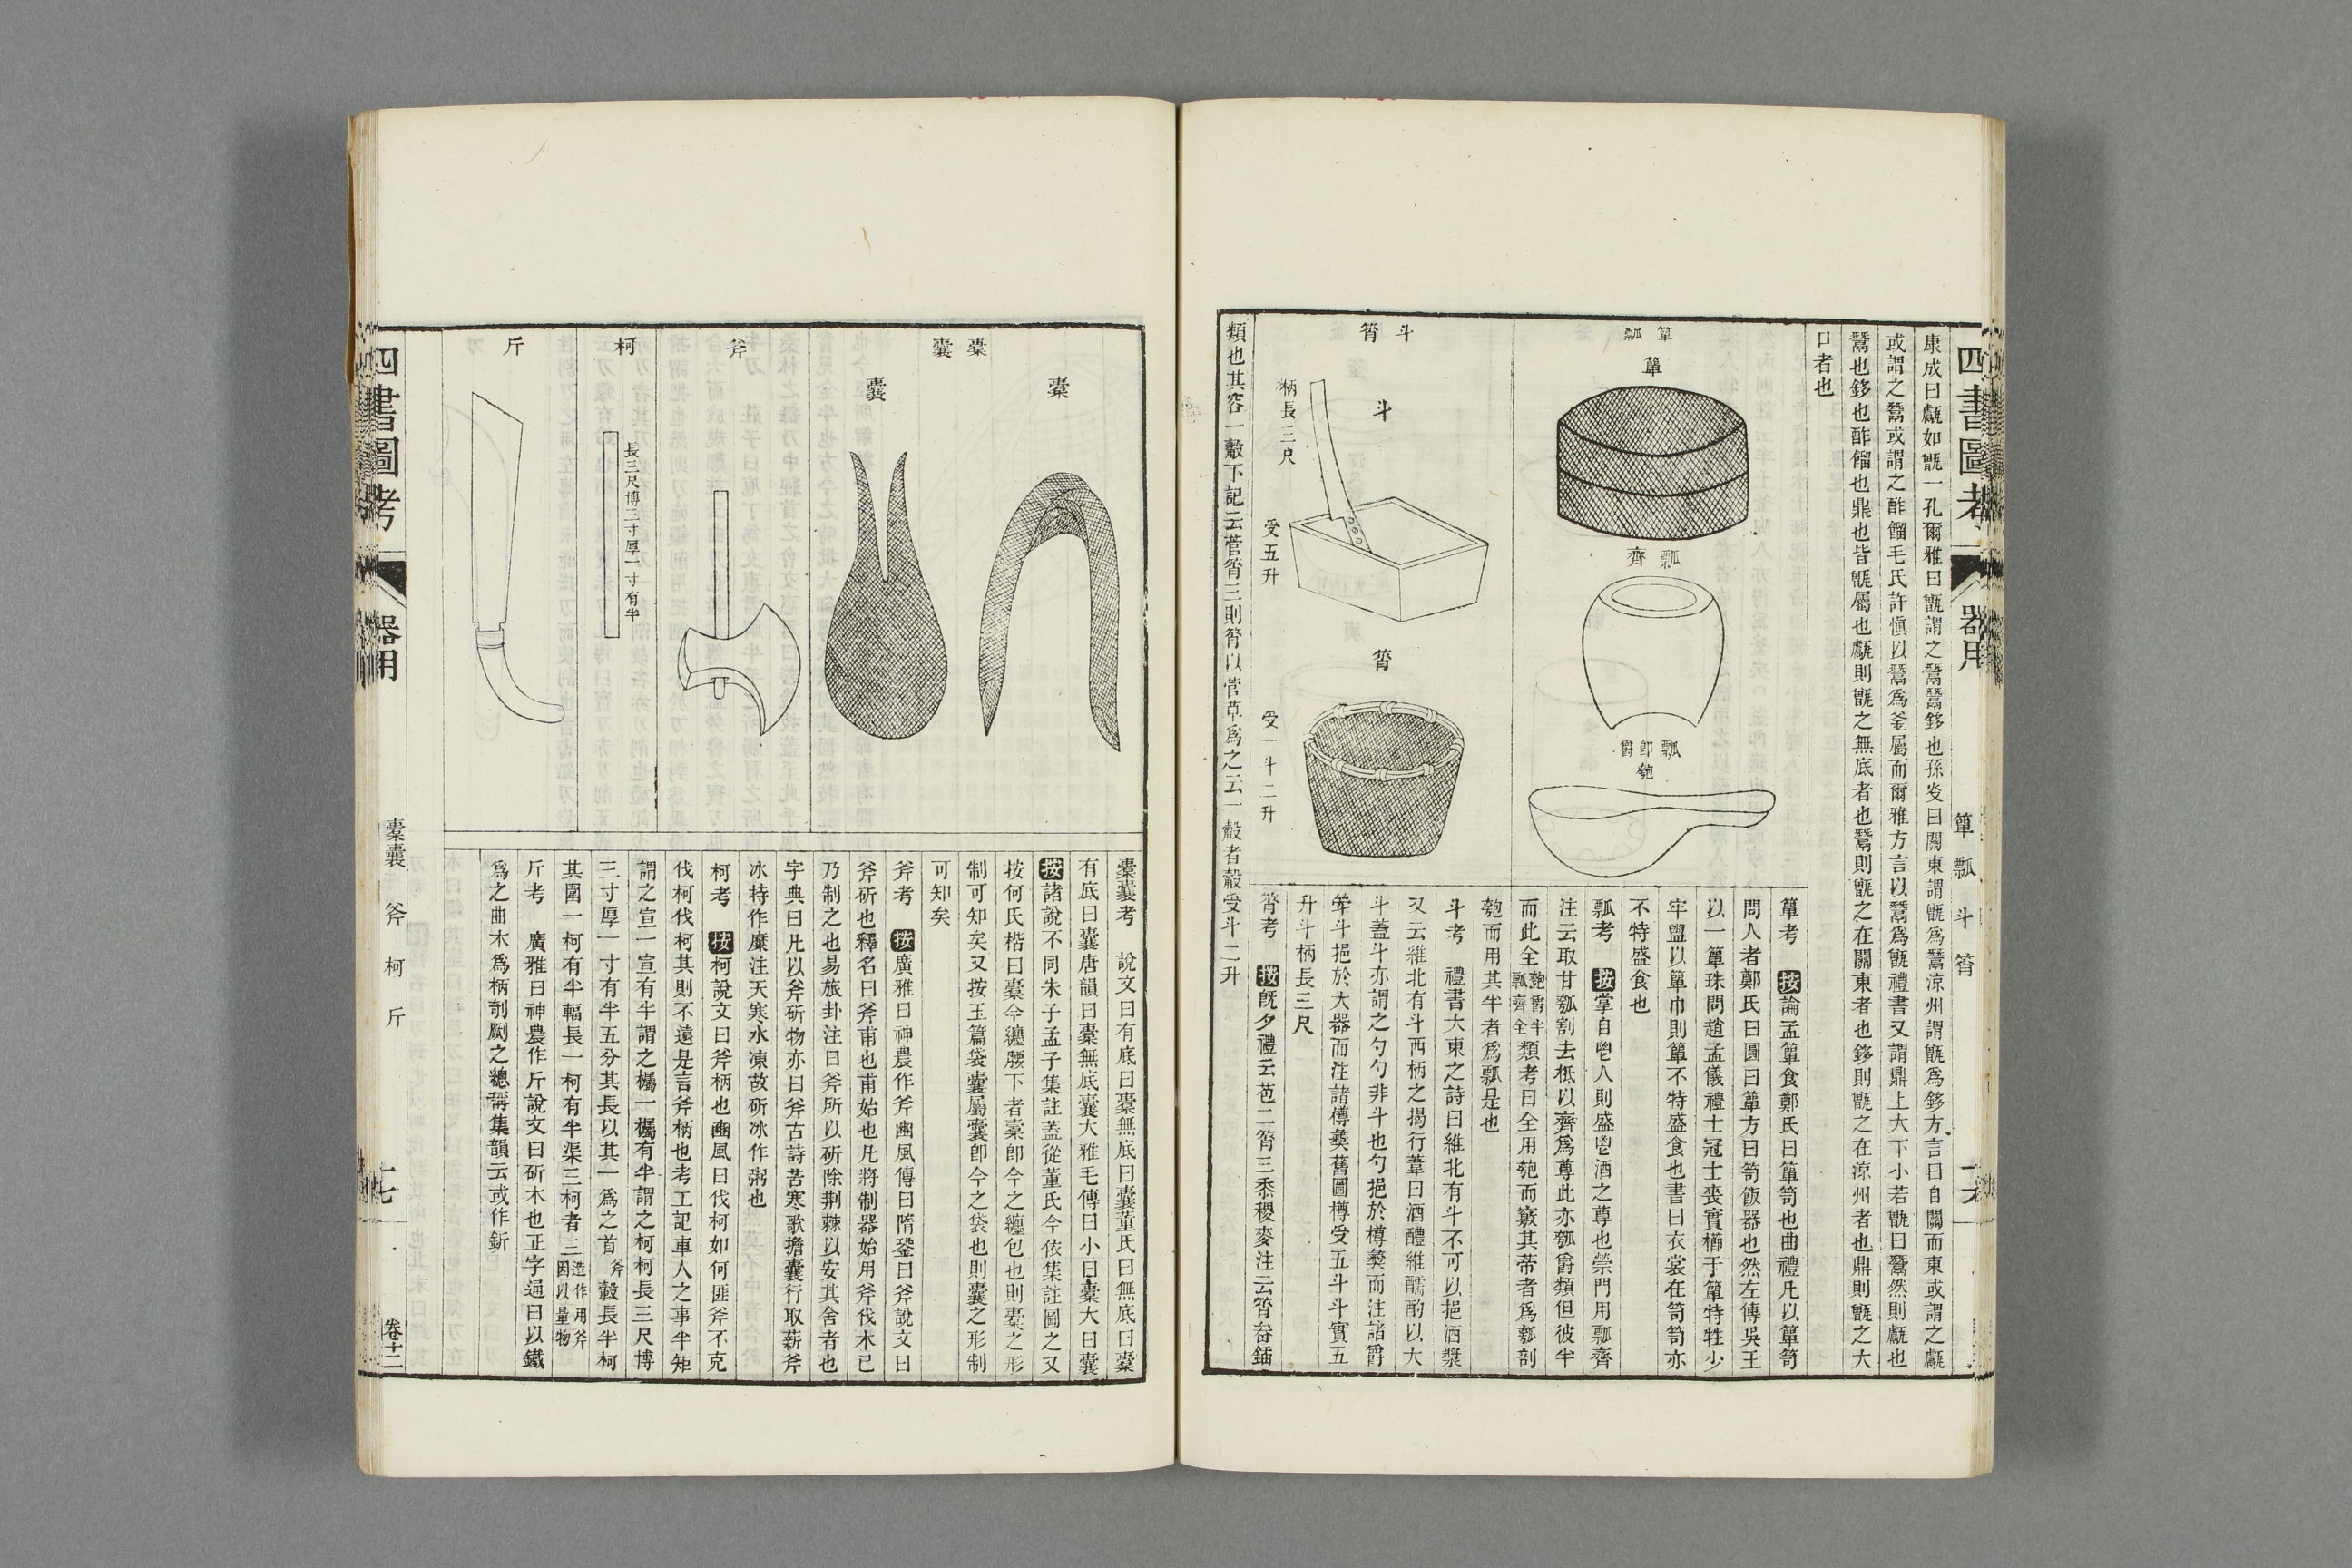 四書圖考
器用
簞 瓢 斗 筲
康成曰甗如甑一孔爾雅曰甑謂之鬵鬵鉹也孫炎曰關東謂甑爲鬵涼州謂甑爲鉹方言曰自關而東或謂之甗
或謂之鬵或謂之酢餾毛氏許愼以鬵爲釜屬而爾雅方言以鬵爲甑禮書又謂鼎上大下小若甑曰鬵然則甗也
鬵也鉹也酢餾也鼎也皆甑屬也甗則甑之無底者也鬵則甑之在關東者也鉹則甑之在涼州者也鼎則甑之大
口者也
簞瓢
簞
瓢齊
瓢卽爵
匏
簞考 按論孟簞食鄭氏曰簞笥也曲禮凡以簞笥
問人者鄭氏曰圓曰簞方曰笥飯器也然左傳吳王
以一簞珠問趙孟儀禮士冠士喪實櫛于簞特牲少
牢盥以簞巾則簞不特盛食也書曰衣裳在笥笥亦
不特盛食也
瓢考 按掌自鬯人則盛鬯酒之尊也禜門用瓢齊
注云取甘瓠割去柢以齊爲尊此亦瓠爵類但彼半
而此全匏爵半瓢齊全類考曰全用匏而竅其蒂者爲瓠剖
匏而用其半者爲瓢是也
斗筲
斗
柄長三尺
受五升
筲
受一斗二升
斗考 禮書大東之詩曰維北有斗不可以挹酒漿
又云維北有斗西柄之揭行葦曰酒醴維醹酌以大
斗蓋斗亦謂之勺勺非斗也勺挹於樽彝而注諸爵
斝斗挹於大器而注諸樽彝舊圖樽受五斗斗實五
升斗柄長三尺
筲考 按旣夕禮云苞二筲三黍稷麥注云筲畚鍤
類也其容一觳下記云菅筲三則筲以菅草爲之云一觳者觳受斗二升
橐囊
橐
囊
斧
柯
長三尺博三寸厚一寸有半
斤
橐囊考 說文曰有底曰橐無底曰囊董氏曰無底曰橐
有底曰囊唐韻曰橐無底囊大雅毛傳曰小曰橐大曰囊
按諸說不同朱子孟子集註蓋從董氏今依集註圖之又
按何氏楷曰橐今纏腰下者橐卽今之纏包也則橐之形
制可知矣又按玉篇袋囊屬囊卽今之袋也則囊之形制
可知矣
斧考 按廣雅曰神農作斧豳風傳曰隋銎曰斧說文曰
斧斫也釋名曰斧甫也甫始也凡將制器始用斧伐木已
乃制之也易旅卦注曰斧所以斫除荆棘以安其舍者也
字典曰凡以斧斫物亦曰斧古詩苦寒歌擔囊行取薪斧
冰持作糜注天寒水凍故斫冰作粥也
柯考 按柯說文曰斧柄也豳風曰伐柯如何匪斧不克
伐柯伐柯其則不遠是言斧柄也考工記車人之事半矩
謂之宣一宣有半謂之欘一欘有半謂之柯柯長三尺博
三寸厚一寸有半五分其長以其一爲之首斧轂長半柯
其圍一柯有半輻長一柯有半渠三柯者三造作用斧因以量物
斤考 廣雅曰神農作斤說文曰斫木也正字通曰以鐵
爲之曲木爲柄剞劂之總稱集韻云或作釿
四書圖考
器用
橐囊 斧 柯 斤
十七
卷十二